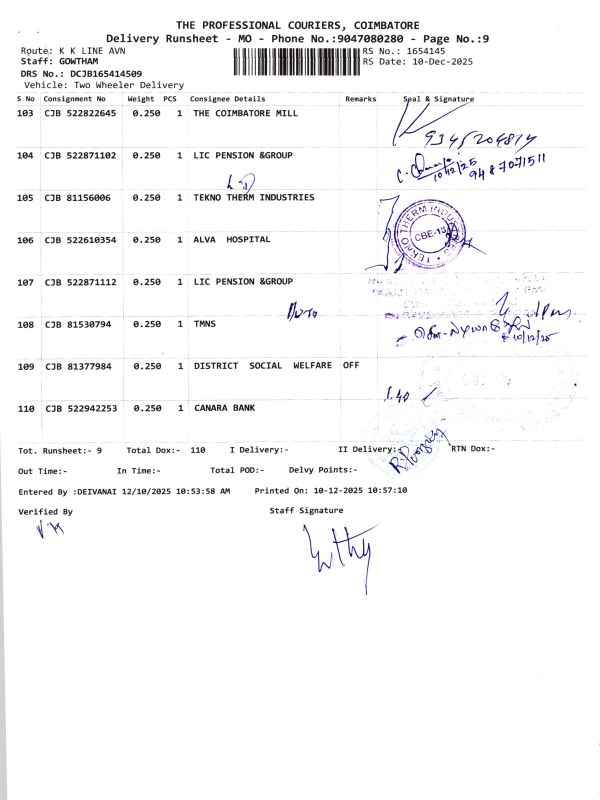 THE PROFESSIONAL COURIERS, COIMBATORE
Delivery Runsheet - MO - Phone No.:9047080280 - Page No.:9
Route: K K LINE AVN RS No.: 1654145
Staff: GOWTHAM RS Date: 10-Dec-2025
DRS No.: DCJB165414509
Vehicle: Two Wheeler Delivery
S No Consignment No Weight PCS Consignee Details Remarks Seal & Signature
103 CJB 522822645 0.250 1 THE COIMBATORE MILL
9345204814
104 CJB 522871102 0.250 1 LIC PENSION &GROUP
10/12/25
9487071511
105 CJB 81156006 0.250 1 TEKNO THERM INDUSTRIES
TEKNO THERM INDUSTRIES
CBE-18
106 CJB 522610354 0.250 1 ALVA HOSPITAL
107 CJB 522871112 0.250 1 LIC PENSION &GROUP
108 CJB 81530794 0.250 1 TMNS
10/12/25
109 CJB 81377984 0.250 1 DISTRICT SOCIAL WELFARE OFF
1.40
110 CJB 522942253 0.250 1 CANARA BANK
Tot. Runsheet:- 9 Total Dox:- 110 I Delivery:- II Delivery:- RTN Dox:-
Out Time:- In Time:- Total POD:- Delvy Points:-
Entered By :DEIVANAI 12/10/2025 10:53:58 AM Printed On: 10-12-2025 10:57:10
Verified By Staff Signature